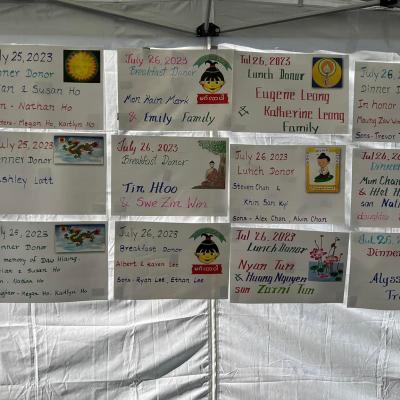 July 25, 2023
Dinner Donor
2 Susan Ho
Nathan Ho
Megan Ho, Kaitlyn Ho
July 26, 2023
Breakfast Donor
Mon Hain Mark
& Emily Family
Jul 26, 2023
Lunch Donor
Eugene Leong
&
Katherine Leong
Family
Jul 26, 2023
Dinner
In honor
Maung Daw
Sons - Trevor
July 25, 2023
Dinner Donor
Ashley Latt
July 26, 2023
Breakfast Donor
Tim Htoo
& Swe Zin Win
July 26, 2023
Lunch Donor
Steven Chan &
Khin San Kyi
Sons - Alex Chan, Alvin Chan
Jul 26, 2023
Dinner
Mum Chan
& Htet H
son Nat
daughter
25, 2023
Dinner Donor
memory of Daw Hlaing
2 Susan Ho
Nathan Ho
Megan Ho, Kaitlyn Ho
July 26, 2023
Breakfast Donor
Albert & Raven Lee
Sons - Ryan Lee, Ethan Lee
Jul 26, 2023
Lunch Donor
Nyan Tun
& Huang Nguyen
son Zuzni Tun
Jul 26
Dinner
Alyss